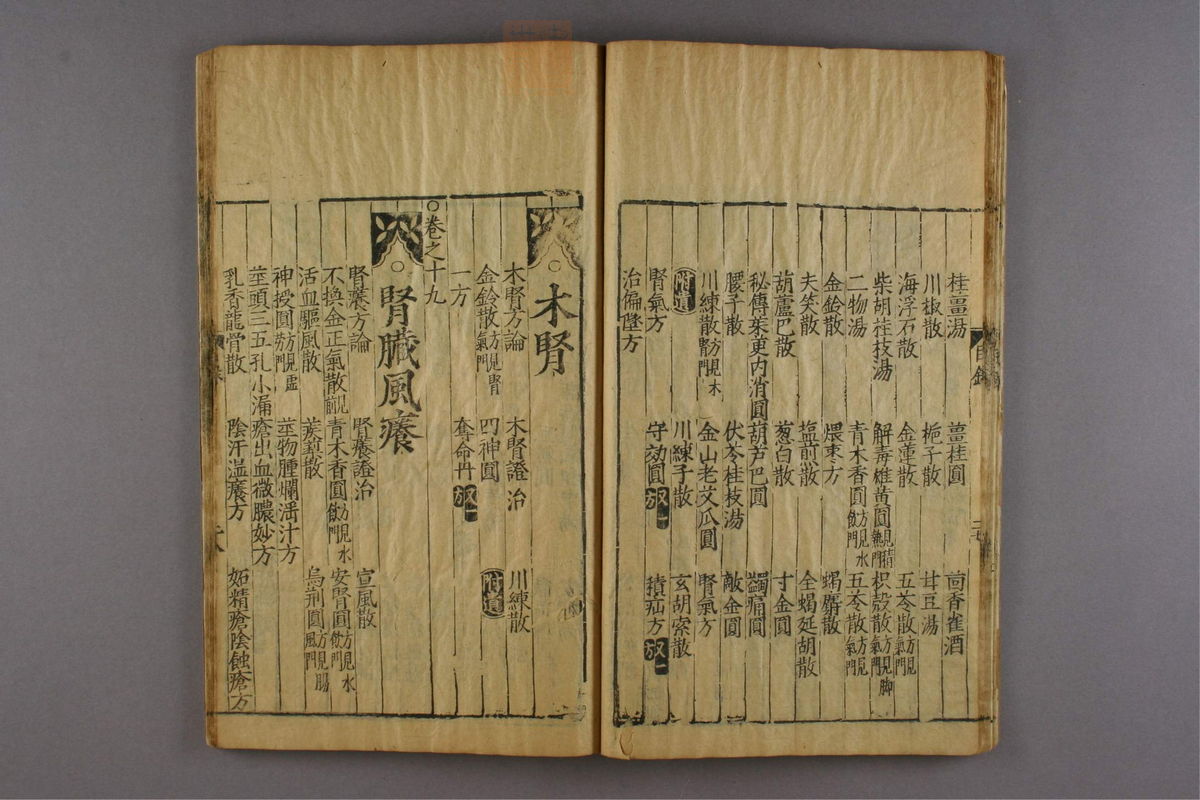 桂薑湯 薑桂圓 茴香雀酒
川椒散 梔子散 甘豆湯
海浮石散 金薑散 五苓散方見氣門
柴胡桂枝湯 解毒雄黃圓 枳殼散方見脚氣門
二物湯 青木香圓方見水飲門 五苓散方見氣門
金鈴散 煨棗方 蝎麝散
夫笑散 塩煎散 全蝎延胡散
葫蘆巴散 葱白散 寸金圓
秘傳茱萸内消圓 葫芦巴圓 蠲痛圓
腰子散 伏苓桂枝湯 敵金圓
川練散方見木腎門 金山老艾瓜圓 腎氣方
附遺 川練子散 玄胡索散
腎氣方 守効圓 放一 積疝方 放一
治偏墜方
木腎
木腎方論 木腎證治 川練散
金鈴散方見腎氣門 四神圓 附遺
一方 奪命丹 放一
卷之十九
腎臟風癢
腎癢方論 腎癢證治 宣風散
不換金正氣散見前 青木香圓方見水飲門 安腎圓方見水飲門
活血驅風散 蒺藜散 烏荆圓方見腸風門
神授圓方見虛勞門 莖物腫爛濕汁方
莖頭三五孔小漏瘡出血微膿妙方
乳香龍骨散 陰汗濕癢方 妬精瘡陰蝕瘡方
目錄